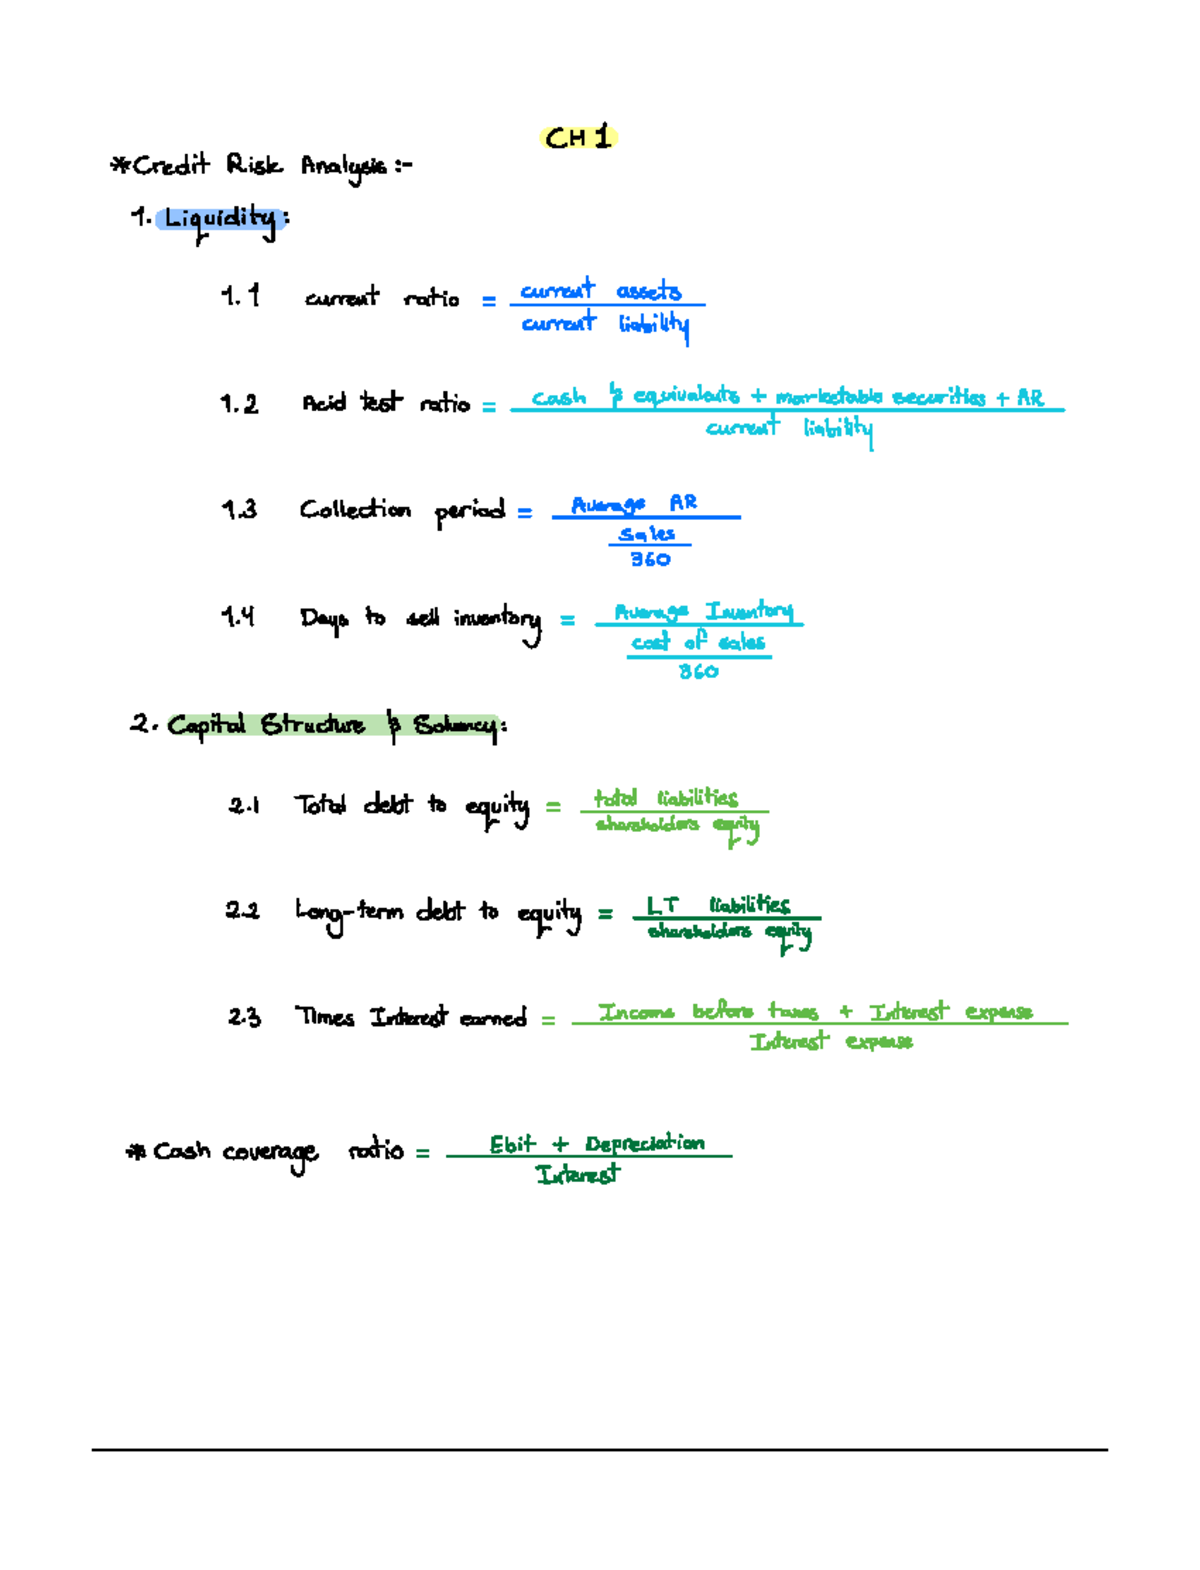 CH 1
*Credit Risk Analysis:-
1. Liquidity:
1.1 current ratio = current assets
current liability
1.2 Acid test ratio = cash & equivalents + marketable securities + AR
current liability
1.3 Collection period = Average AR
Sales
360
1.4 Days to sell inventory = Average Inventory
cost of sales
360
2. Capital Structure & Solvency:
2.1 Total debt to equity = total liabilities
shareholders equity
2.2 Long-term debt to equity = LT liabilities
shareholders equity
2.3 Times Interest earned = Income before taxes + Interest expense
Interest expense
* Cash coverage ratio = Ebit + Depreciation
Interest